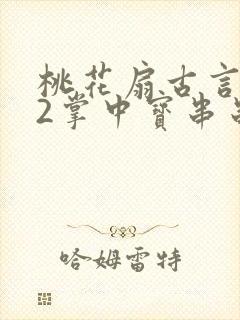 桃花扇古言
2掌中寶串
哈姆雷特